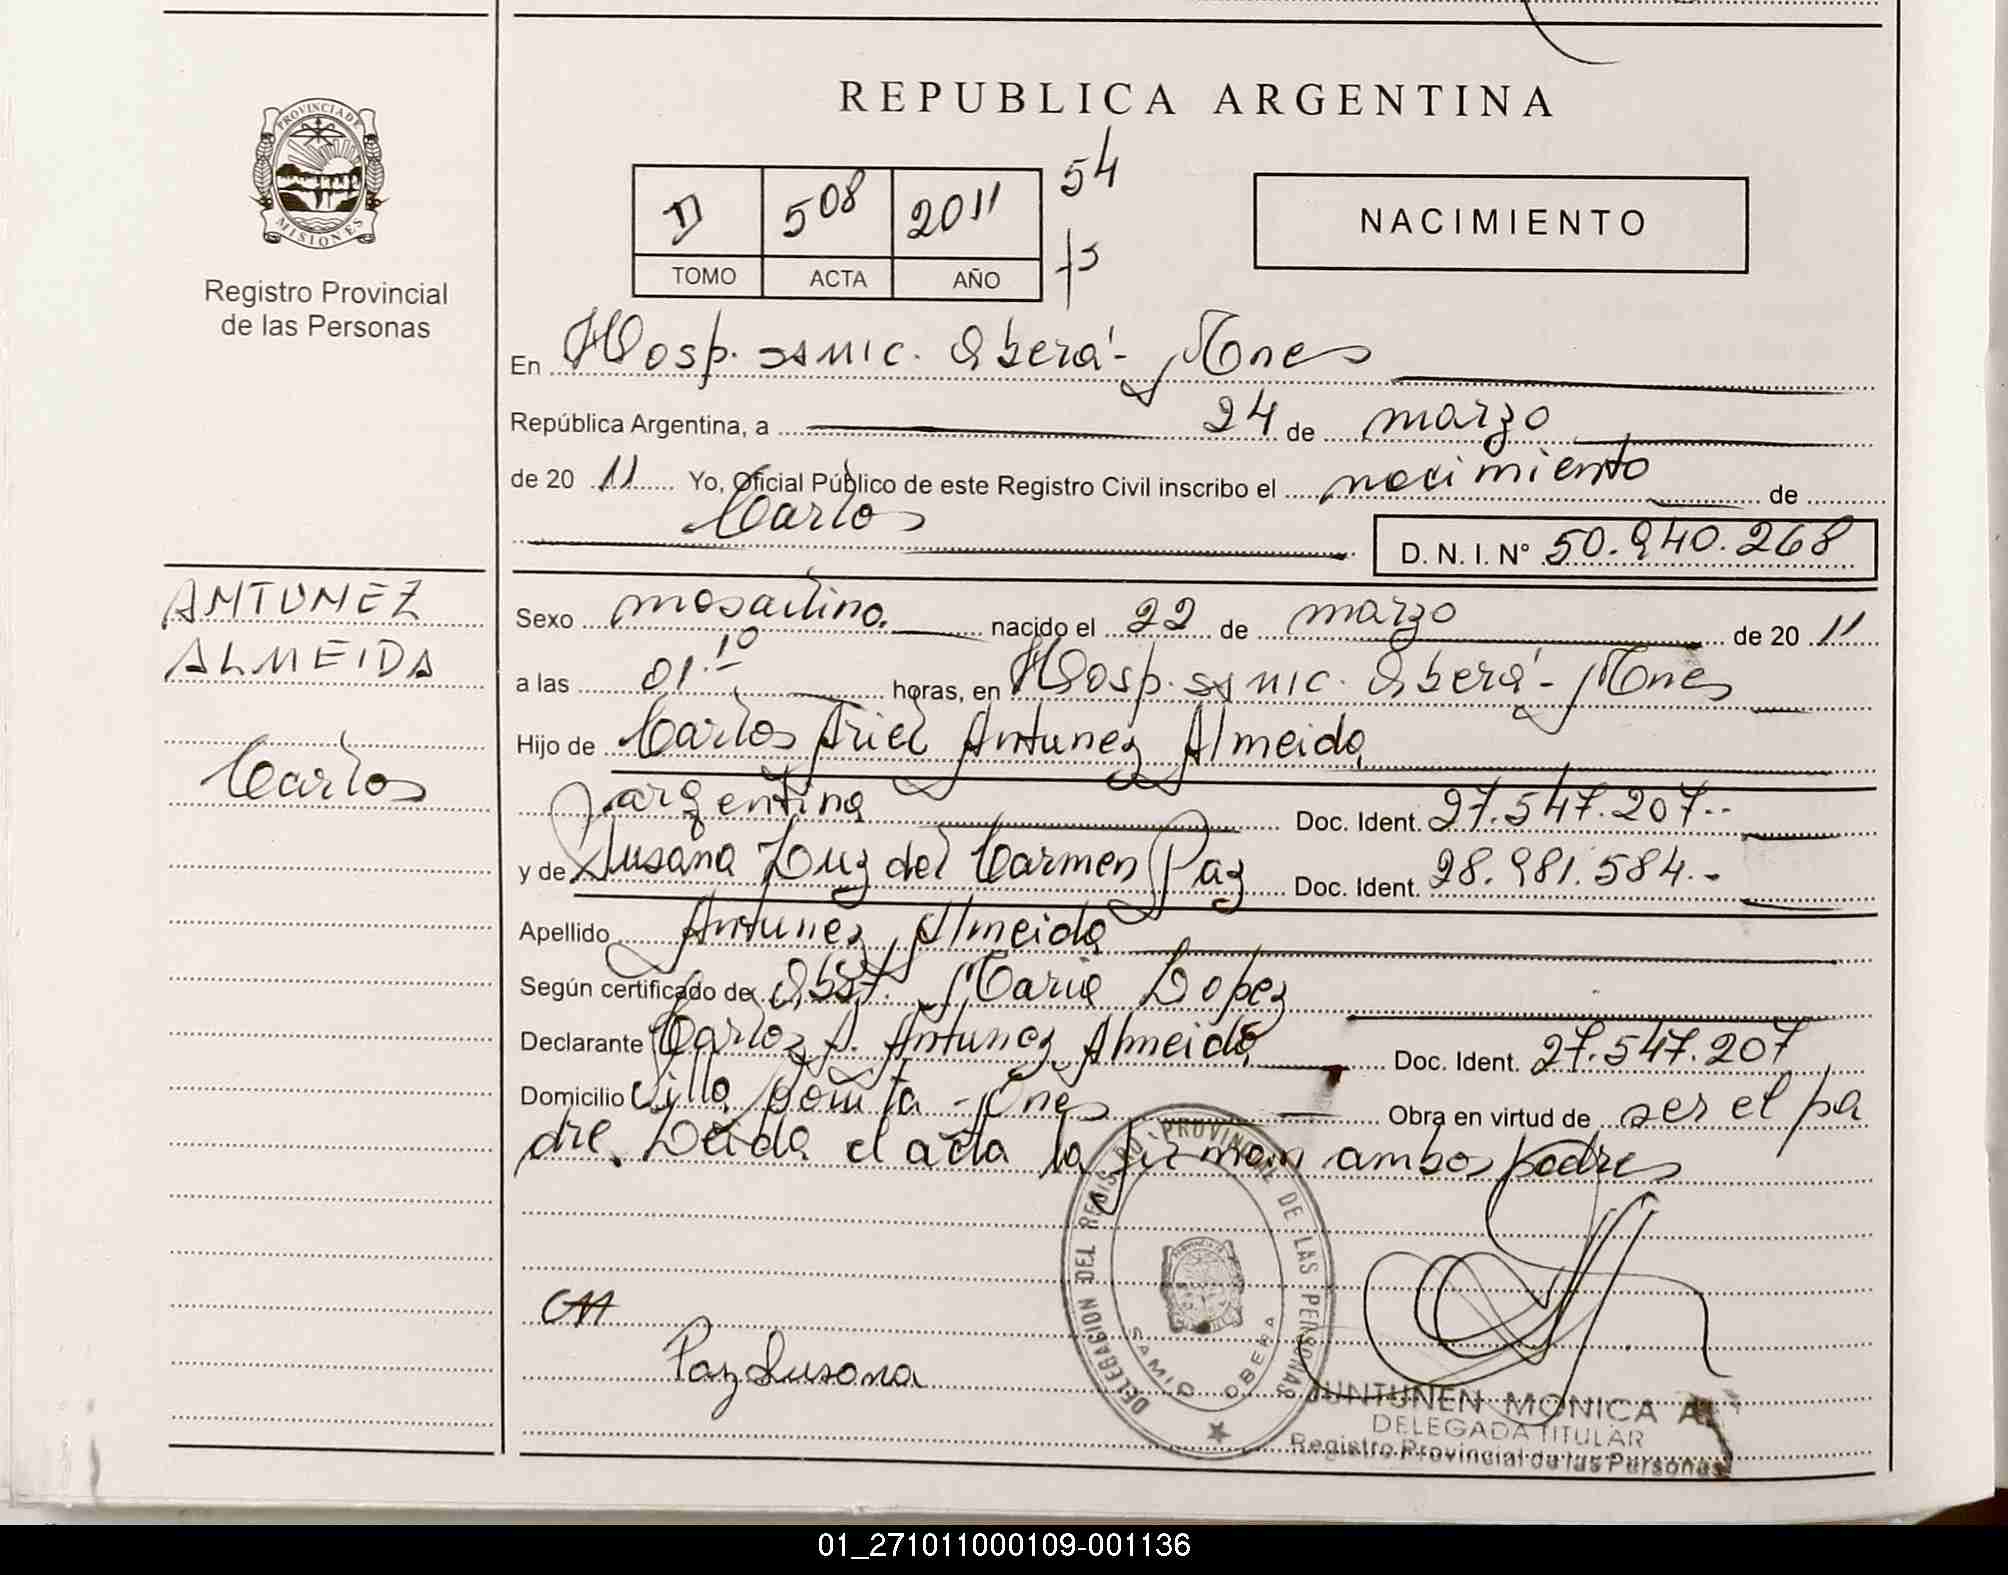 REPUBLICA ARGENTINA
PROVINCIA DE
MISIONES
Registro Provincial
de las Personas
D 508 2011 54
TOMO ACTA AÑO
NACIMIENTO
En Hosp. SAMIC. Oberá - Mnes
República Argentina, a 24 de marzo
de 20 11 Yo, Oficial Público de este Registro Civil inscribo el nacimiento de
Carlos D. N. I. Nº 50.940.268
ANTUNEZ
ALMEIDA
Carlos
Sexo masculino. nacido el 22 de marzo de 20 11
a las 01.10 horas, en Hosp. SAMIC. Oberá - Mnes
Hijo de Carlos Ariel Antunez Almeida
argentina Doc. Ident. 27.547.207.-
y de Susana Luz del Carmen Paz Doc. Ident. 28.981.584.-
Apellido Antunez Almeida
Según certificado de Obst. Maria Lopez
Declarante Carlos A. Antunez Almeida Doc. Ident. 27.547.207
Domicilio Villa Bonita - Mnes Obra en virtud de ser el pa
dre. Leida el acta la firman ambos padres
DELEGACION DEL REGISTRO PROVINCIAL DE LAS PERSONAS
SAMIC OBERA
Paz Susana
JUNTUNEN MONICA A.
DELEGADA TITULAR
Registro Provincial de las Personas
01_271011000109-001136